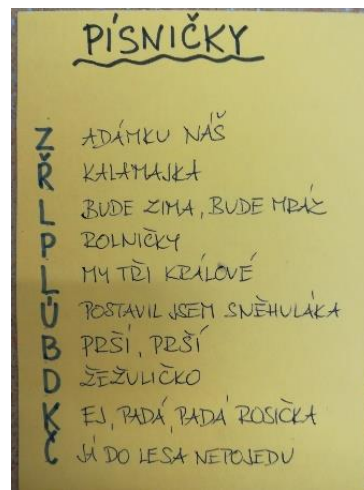 PÍSNIČKY
Z ADÁMKU NÁŠ
Ř KALAMAJKA
L BUDE ZIMA, BUDE MRÁZ
P ROLNIČKY
L MY TŘI KRÁLOVÉ
Ú POSTAVIL JSEM SNĚHULÁKA
B PRŠÍ, PRŠÍ
D ŽEŽULIČKO
K EJ, PADÁ, PADÁ ROSIČKA
Č JÁ DO LESA NEPOJEDU